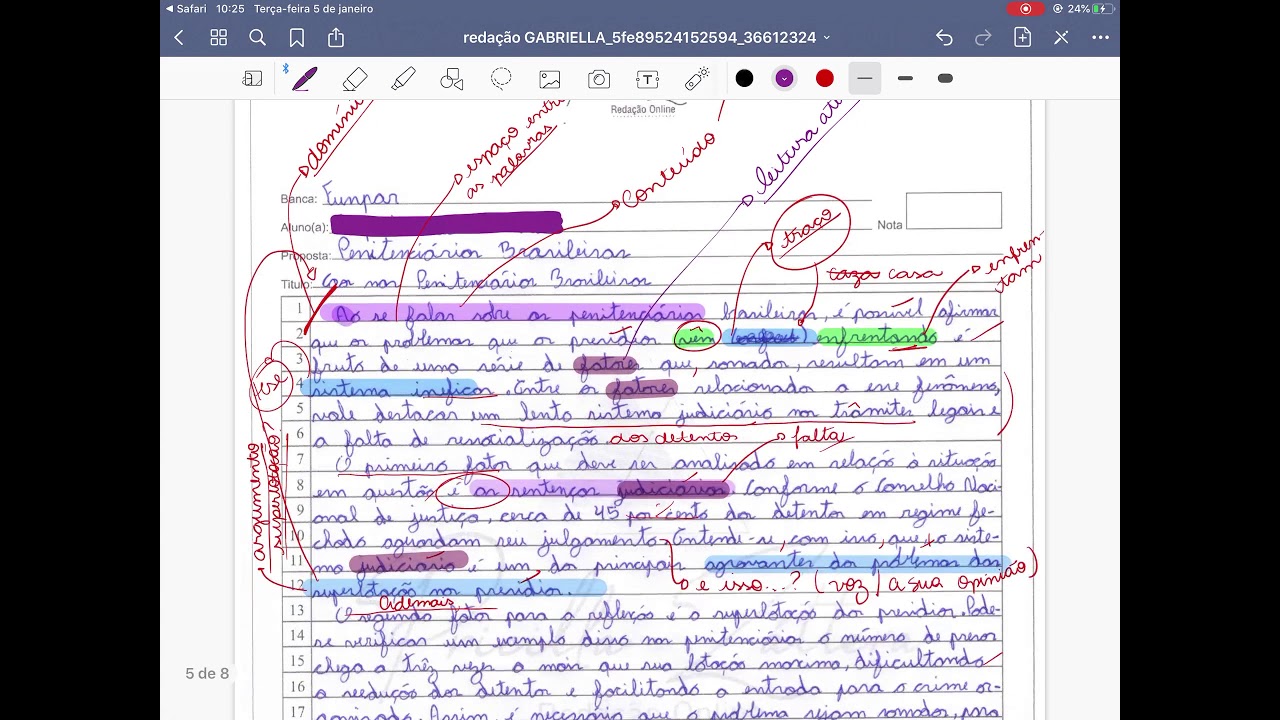 Safari 10:25 Terça-feira 5 de janeiro 24%
redação GABRIELLA_5fe89524152594_36612324
Redação Online
domíni
espaço entre
as palavras.
Conteúdo
leitura ate
Banca: Funpar
Aluno(a):
Nota
traço
Proposta: Penitenciárias Brasileiras
cazas casa
enfren-
tam
Título: nas Penitenciárias Brasileiras
1 Ao se falar sobre as penitenciárias brasileiras, é possível afirmar
2 que os problemas que os presídios vêm enfrentando é
3 fruto de uma série de fatores que, somados, resultam em um
4 sistema ineficaz. Entre os fatores relacionados a esse fenômeno,
5 vale destacar um lento sistema judiciário nos trâmites legais e
6 a falta de ressocialização dos detentos
falta
7 O primeiro fator que deve ser analisado em relação à situação
8 em questão é as sentenças judiciárias. Conforme o Conselho Naci-
9 onal de justiça, cerca de 45 por cento dos detentos em regime fe-
10 chado aguardam seu julgamento. Entende-se, com isso, que o siste-
11 ma judiciário é um dos principais agravantes dos problemas das
12 superlotação nos presídios.
e isso...? (voz / a sua opinião)
argumento
superlotação
Ademais,
13 O segundo fator para a reflexão é a superlotação dos presídios. Pode-
14 se verificar um exemplo disso nas penitenciárias o número de presos
15 chega a três vezes a mais que sua lotação maxima, dificultando
16 a reedução dos detentos e facilitando a entrada para o crime or-
17 ganizado. Assim, é necessário que o problema sejam somados, para
5 de 8
Redação Online